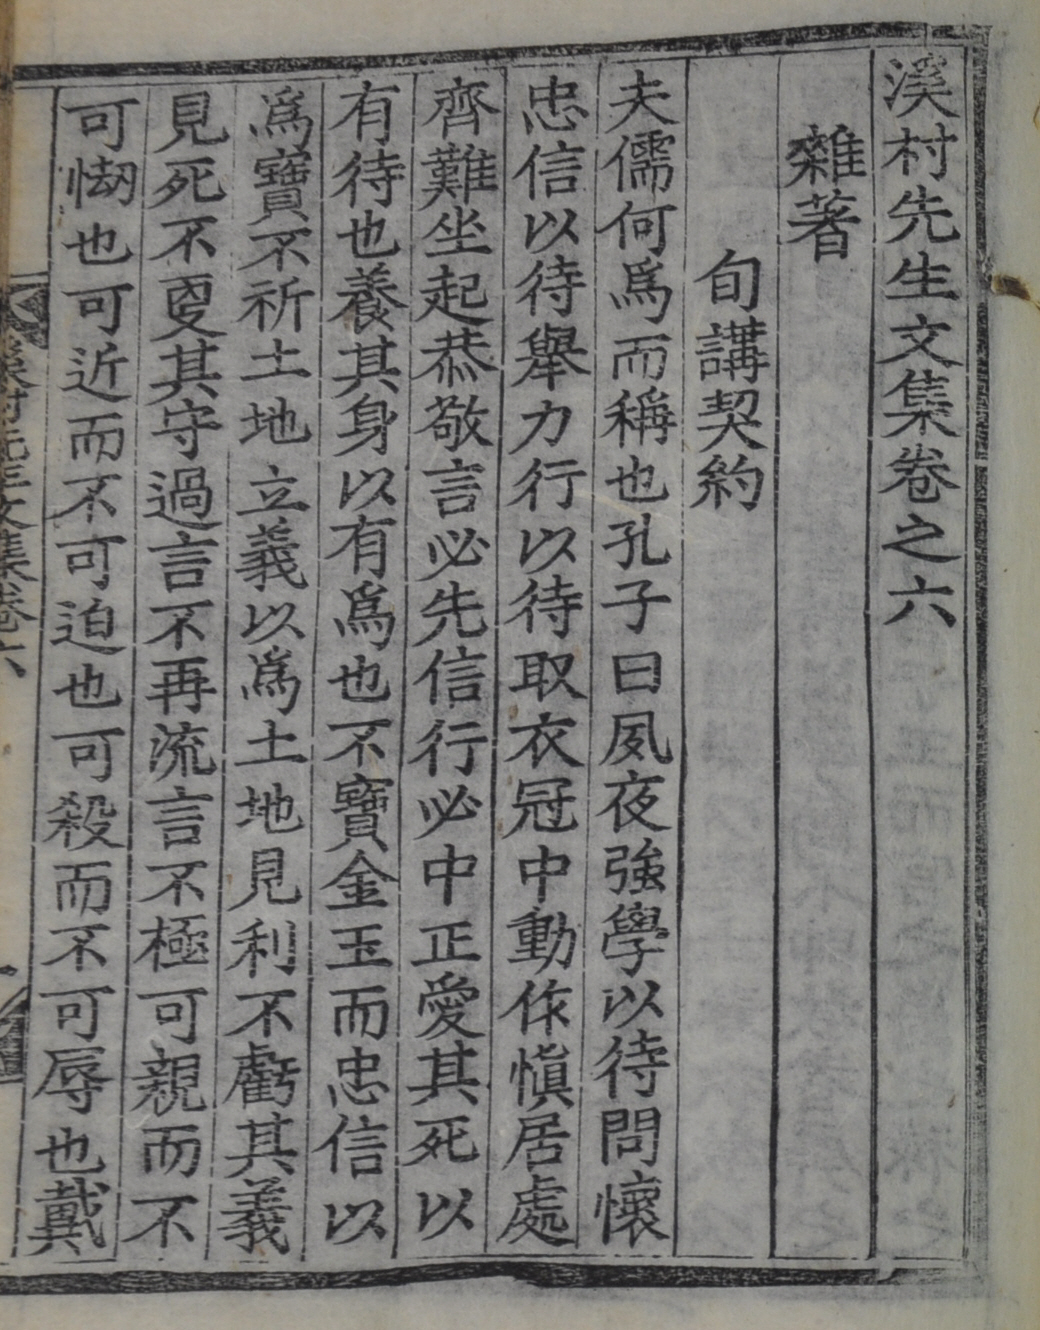 溪村先生文集卷之六
雜著
旬講契約
夫儒何爲而稱也孔子曰夙夜強學以待問懷
忠信以待舉力行以待取衣冠中動作愼居處
齊難坐起恭敬言必先信行必中正愛其死以
有待也養其身以有爲也不寶金玉而忠信以
爲寶不祈土地立義以爲土地見利不虧其義
見死不更其守過言不再流言不極可親而不
可㥘也可近而不可迫也可殺而不可辱也戴
溪村先生文集卷六